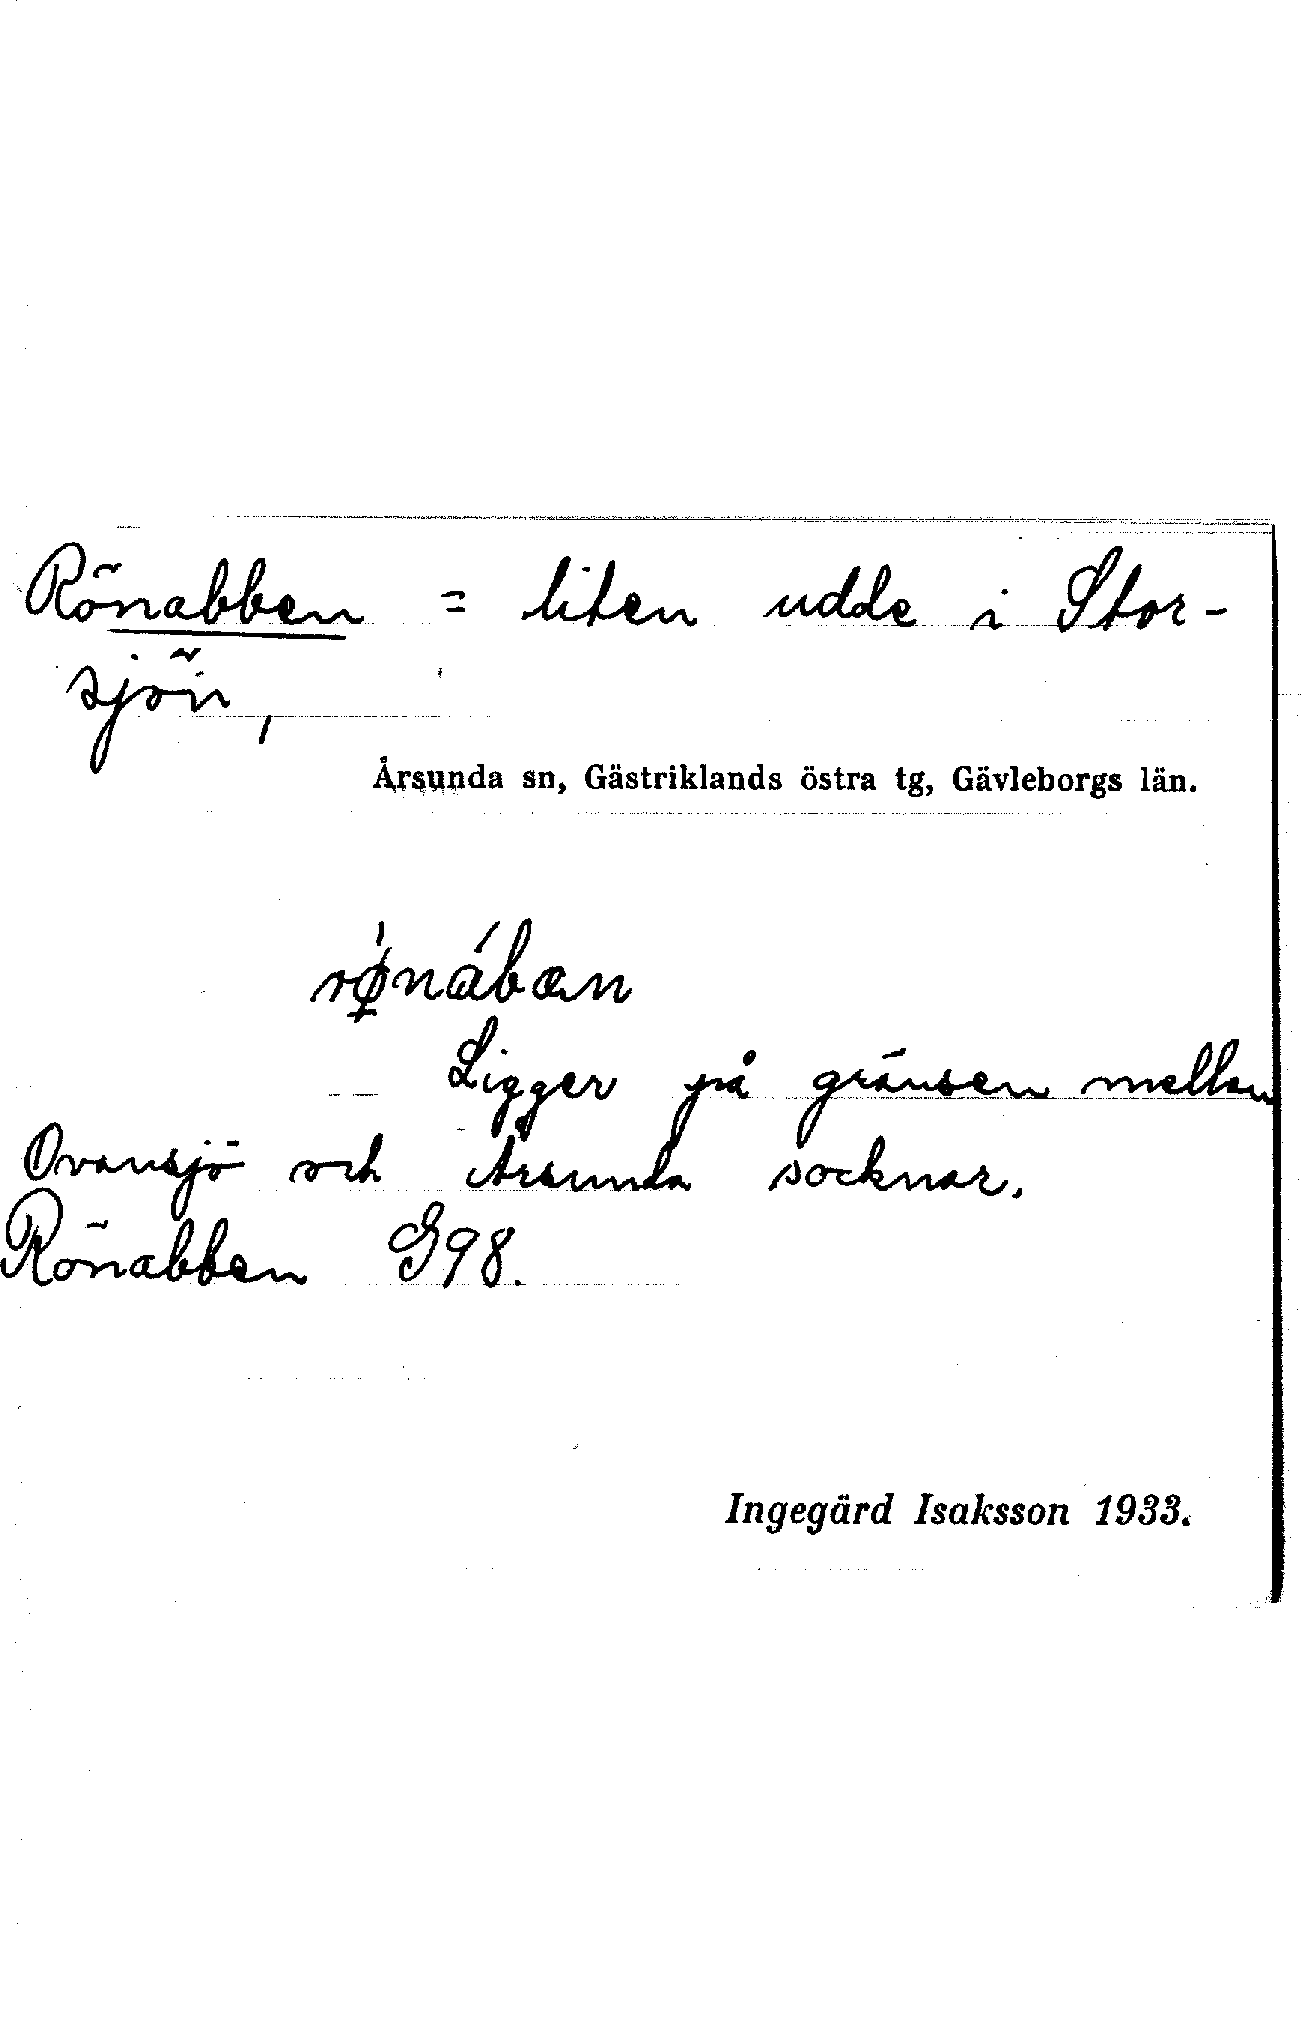 Rönabben = liten udde i Stor-
sjön,
Årsunda sn, Gästriklands östra tg, Gävleborgs län.
rø̀nában
Ligger på gränsen mellan
Ovansjö och Årsunda socknar.
Rönabben G98.
Ingegärd Isaksson 1933.